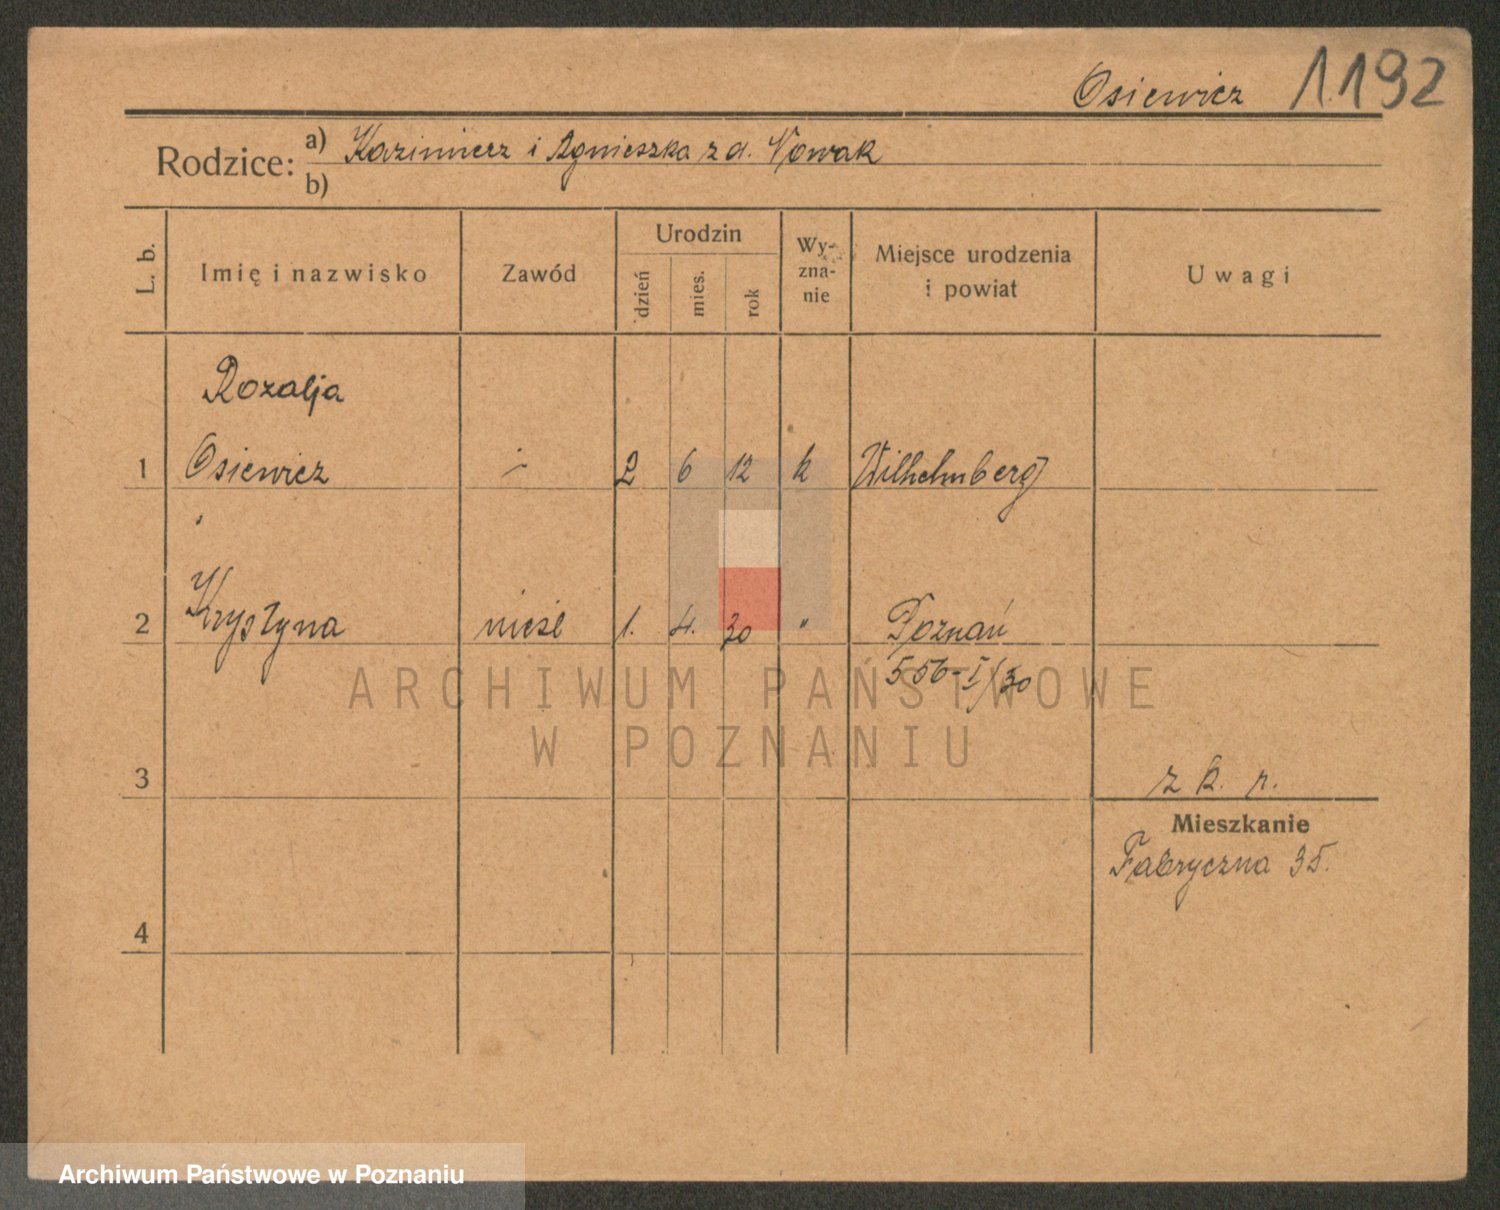 Osiewicz 1192
Rodzice: a) Kazimierz i Agnieszka z d. Nowak
b)
L. b.
Imię i nazwisko
Zawód
Urodzin
dzień
mies.
rok
Wy-
zna-
nie
Miejsce urodzenia
i powiat
Uwagi
Rozalja
1 Osiewicz 2 6 12 k Wilhelmberg
2 Krystyna nieśl 1. 4. 30 " Poznań
556-I/30
ARCHIWUM PAŃSTWOWE
W POZNANIU
3
z k. r.
Mieszkanie
Fabryczna 35.
4
Archiwum Państwowe w Poznaniu